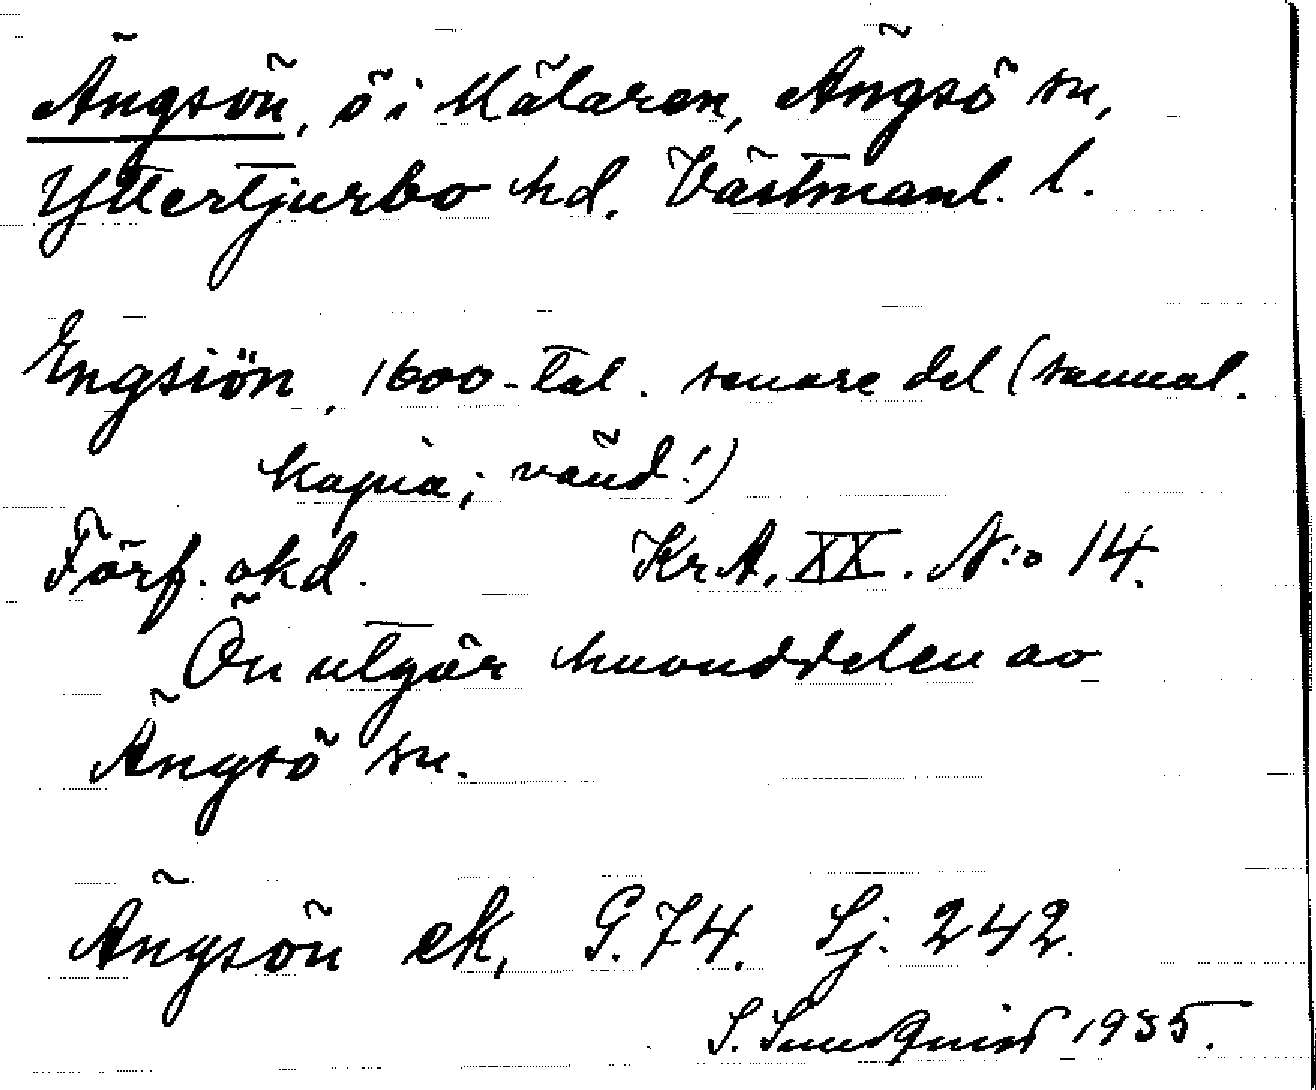 Ängsön, ö i Mälaren, Ängsö sn,
Yttertjurbo hd. Västmanl. l.
Engsiön, 1600-tal. senare del (sammal.
kopia; vänd!)
Förf. okd. Kr.A. XX. N:o 14.
Ön utgör huvuddelen av
Ängsö sn.
Ängsön ek, G. 74. Sj. 242.
S. Sundquist 1935.